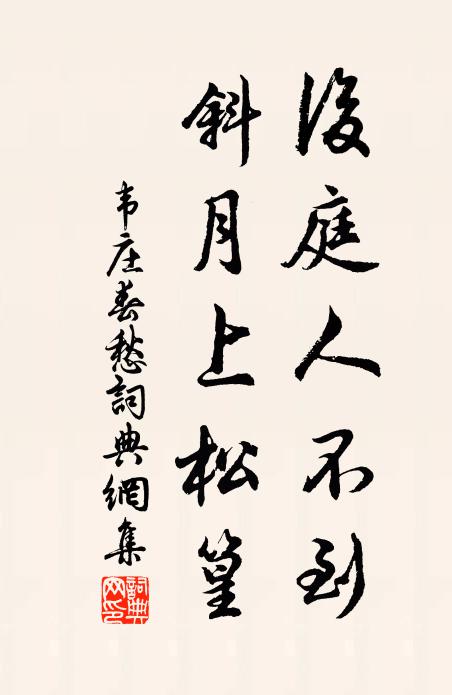 後庭人不到
斜月上松篁
韦庄春愁詞典網集
詞典网印